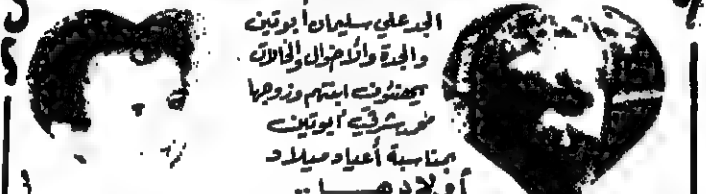 الجد علي سليمان أبوتين
والجدة والأخوال والخالات
يهنئون ابنتهم وزوجها
شرقي أبوتين
بمناسبة أعياد ميلاد
أولادهما ..